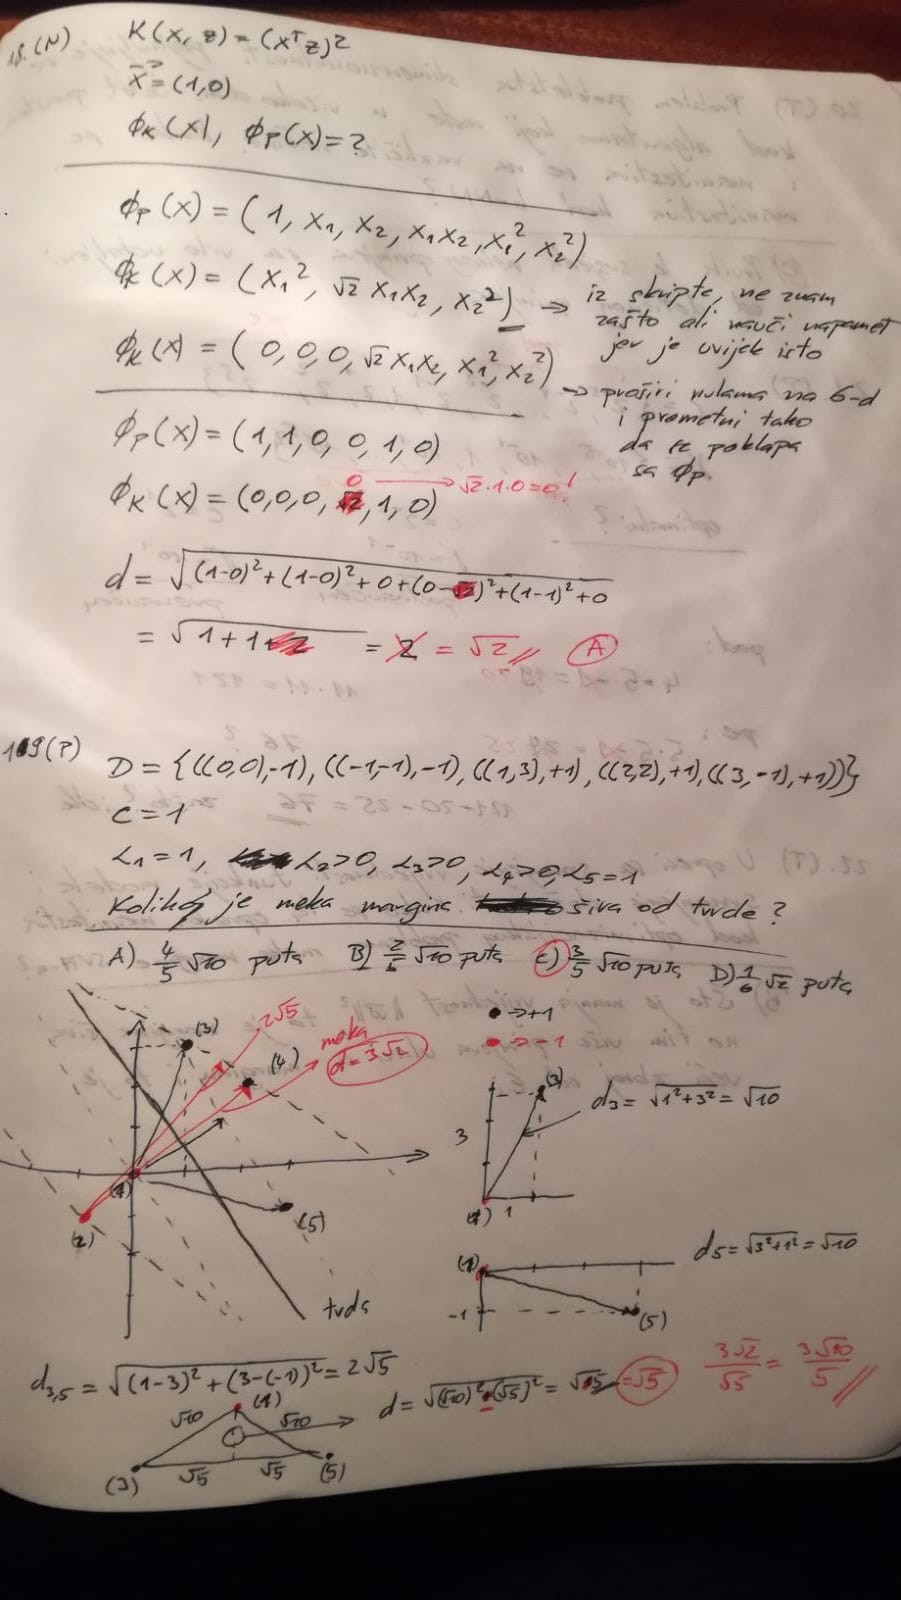 18.(N) K(x, z) = (xᵀz)²
x⃗ = (1,0)
ϕK(x), ϕP(x) = ?
ϕP(x) = (1, x₁, x₂, x₁x₂, x₁², x₂²)
ϕK(x) = (x₁², √2 x₁x₂, x₂²) → iz skripte, ne znam
zašto ali nauči napamet
jer je uvijek isto
ϕK(x) = (0, 0, 0, √2 x₁x₂, x₁², x₂²)
→ proširi nulama na 6-d
i prometni tako
da se poklapa
sa ϕP.
ϕP(x) = (1, 1, 0, 0, 1, 0)
0 → √2·1·0=0!
ϕK(x) = (0,0,0, √2, 1, 0)
d = √((1-0)²+(1-0)²+0+(0-√2)²+(1-1)²+0
= √1+1+2 = 2 = √2 // (A)
119(P)
D = {((0,0),-1), ((-1,-1),-1), ((1,3),+1), ((2,2),+1), ((3,-1),+1))}
C = 1
α₁=1, α₂>0, α₃>0, α₄>0, α₅=1
Koliko je meka margina šira od tvrde?
A) 4/5 √10 puta B) 2/5 √10 puta C) 3/5 √10 puta D) 1/6 √2 puta
• → +1
• → -1
(3)
2√5
(4)
meka
d=3√2
(1)
(2)
(5)
tvrda
(3)
3
d₃ = √(1²+3²) = √10
(1) 1
(1)
d₅ = √(3²+1²) = √10
-1
(5)
d₃,₅ = √((1-3)² + (3-(-1))²) = 2√5
d = √((√10)²-(√5)²) = √15 = √5
3√2/√5 = 3√10/5 //
√10 (1) √10
(3) √5 √5 (5)